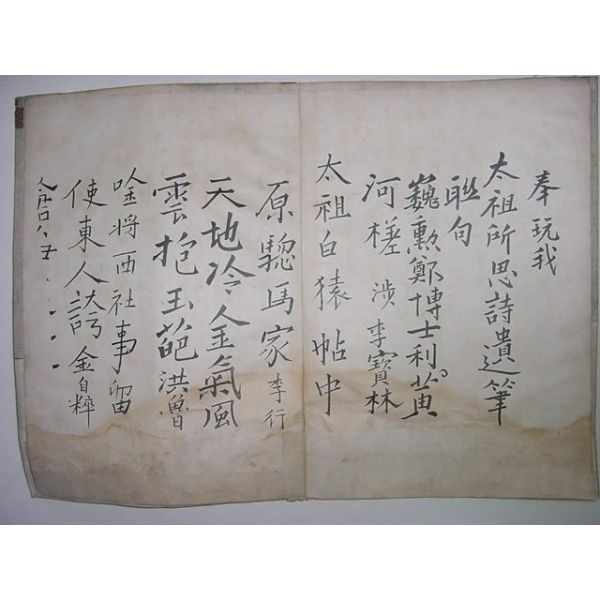 奉玩我
太祖所思詩遺筆
聯句
巍勲鄭博士利黄
河槎涉李寶林
太祖白猿帖中
原騘馬家李行
天地冷金氣風
雲抱玉葩洪魯
唫將西社事留
使東人誇金自粹